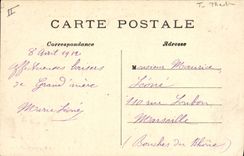 II
CARTE POSTALE
Correspondance
Adresse
8 Août 1912
Affectueuses baisers
de Grand'mère
Marie
Monsieur Maurice
110 rue Loubon
Marseille
(Bouches du Rhône)